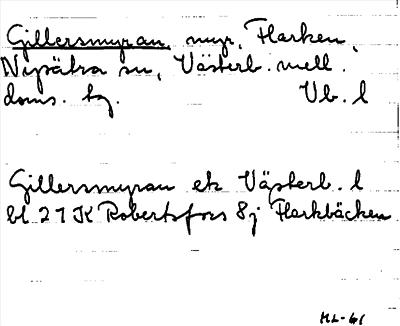 Gillersmyran, myr, Flarken,
Nysätra sn, Västerb. mell.
doms. hg. Vb. l
Gillersmyran ek Västerb. l
bl 21 K Robertsfors 8j Flarkbäcken
ML-61